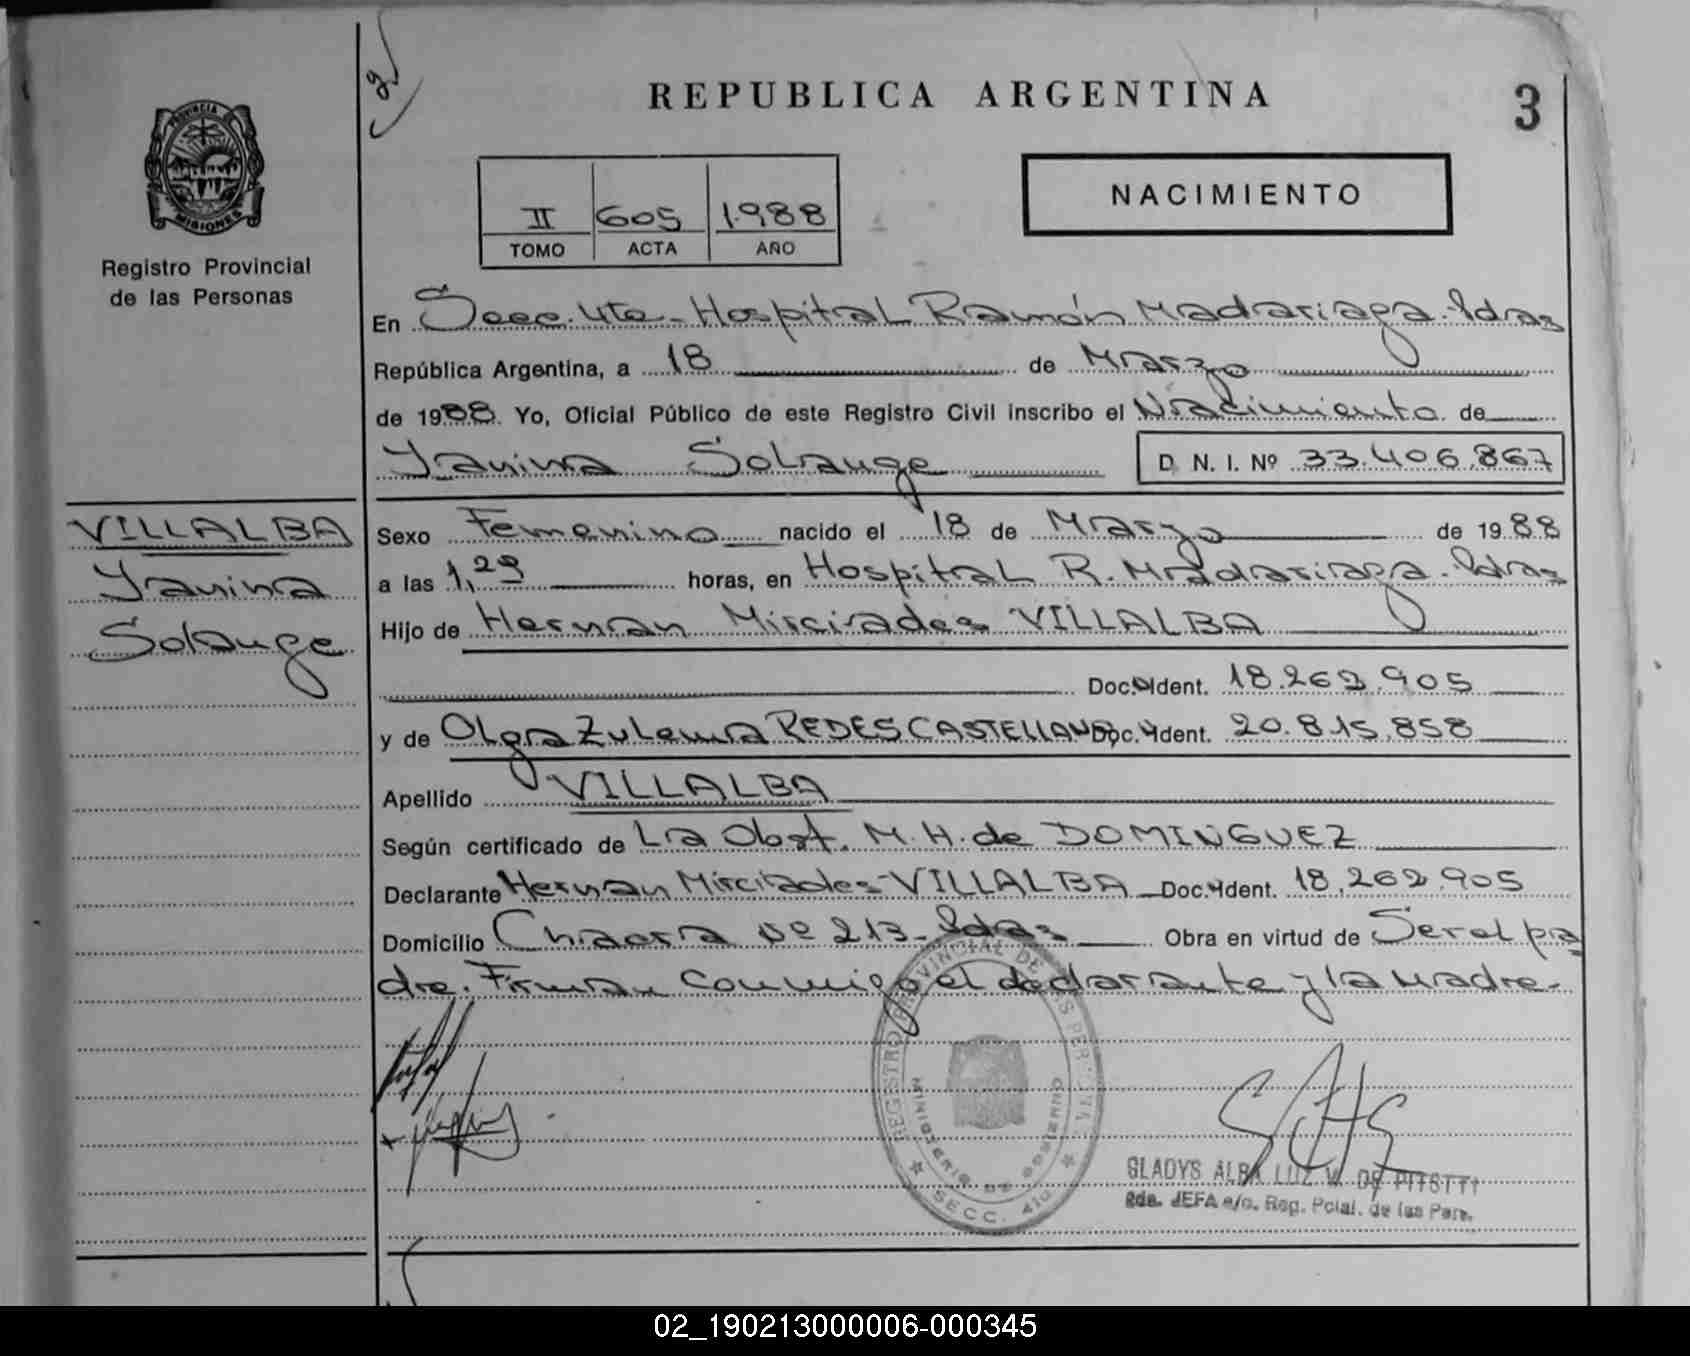 REPUBLICA ARGENTINA
3
NACIMIENTO
II 605 1.988
TOMO ACTA AÑO
PROVINCIA DE
MISIONES
Registro Provincial
de las Personas
En Secc. 4ta - Hospital Ramón Madariaga. Pdas
República Argentina, a 18 de Marzo
de 1988. Yo, Oficial Público de este Registro Civil inscribo el Nacimiento de
Yanina Solange D. N. I. Nº 33.406.867
VILLALBA
Yanina
Solange
Sexo Femenino nacido el 18 de Marzo de 1988
a las 1,29 horas, en Hospital R. Madariaga. Pdas
Hijo de Hernan Mirciades VILLALBA
Doc. Ident. 18.262.905
y de Olga Zulema REDES CASTELLANO Doc. Ident. 20.815.858
Apellido VILLALBA
Según certificado de La Obst. M. H. de DOMINGUEZ
Declarante Hernan Mirciades VILLALBA Doc. Ident. 18.262.905
Domicilio Chacra Nº 213 - Pdas Obra en virtud de Ser el pa
dre. Firman conmigo el declarante y la madre.
REGISTRO PROVINCIAL DE LAS PERSONAS
MINISTERIO DE GOBIERNO
SECC. 4ta
GLADYS ALBA LUZ W. DE
2da. JEFA a/c. Reg. Pcial. de las Pers.
02_190213000006-000345